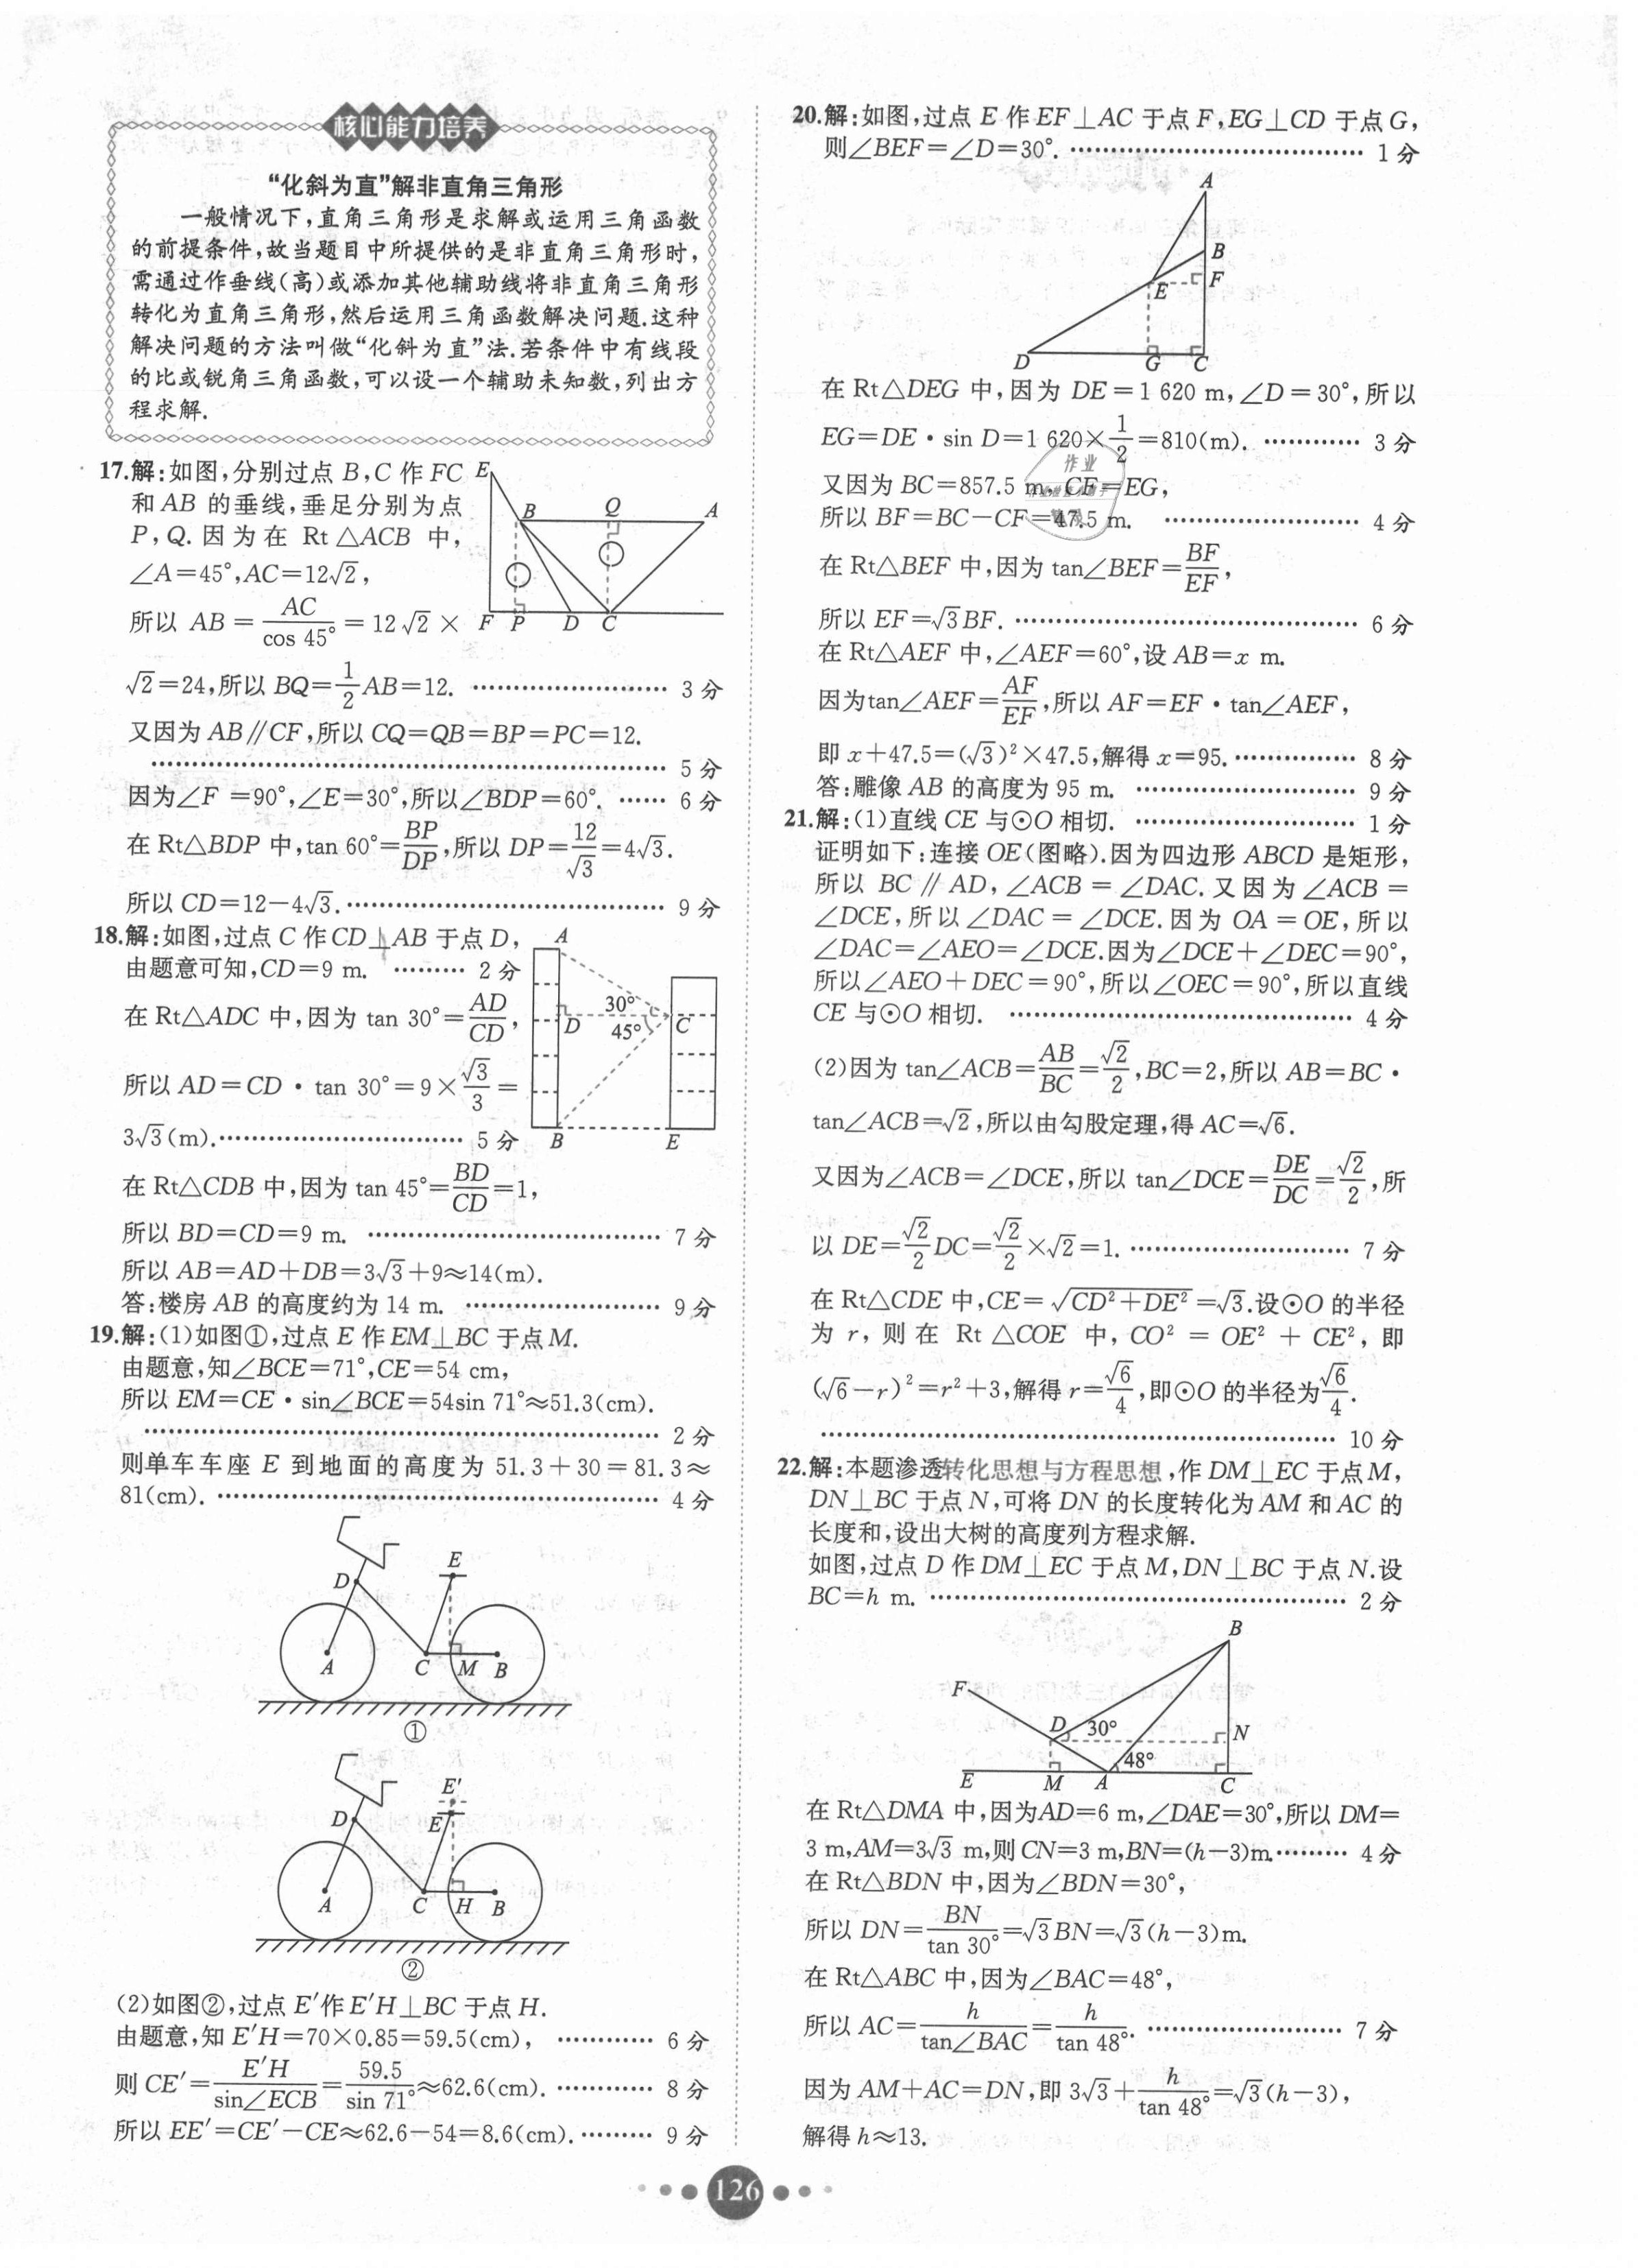 核心能力培养
“化斜为直”解非直角三角形
一般情况下,直角三角形是求解或运用三角函数
的前提条件,故当题目中所提供的是非直角三角形时,
需通过作垂线(高)或添加其他辅助线将非直角三角形
转化为直角三角形,然后运用三角函数解决问题.这种
解决问题的方法叫做“化斜为直”法.若条件中有线段
的比或锐角三角函数,可以设一个辅助未知数,列出方
程求解.
17.解:如图,分别过点 B,C 作 FC
和 AB 的垂线,垂足分别为点
P,Q. 因为在 Rt△ACB 中,
∠A=45°,AC=12√2,
所以 AB = AC/cos 45° = 12√2 ×
√2=24,所以 BQ=1/2AB=12. ⋯⋯ 3 分
E B Q A F P D C
又因为 AB∥CF,所以 CQ=QB=BP=PC=12.
⋯⋯ 5 分
因为∠F =90°,∠E=30°,所以∠BDP=60°. ⋯⋯ 6 分
在 Rt△BDP 中,tan 60°=BP/DP,所以 DP=12/√3=4√3.
所以 CD=12−4√3. ⋯⋯ 9 分
18.解:如图,过点 C 作 CD⊥AB 于点 D,
由题意可知,CD=9 m. ⋯⋯ 2 分
在 Rt△ADC 中,因为 tan 30°=AD/CD,
所以 AD=CD・tan 30°=9×√3/3=
3√3(m). ⋯⋯ 5 分
A D 30° 45° C B E
在 Rt△CDB 中,因为 tan 45°=BD/CD=1,
所以 BD=CD=9 m. ⋯⋯ 7 分
所以 AB=AD+DB=3√3+9≈14(m).
答:楼房 AB 的高度约为 14 m. ⋯⋯ 9 分
19.解:(1)如图①,过点 E 作 EM⊥BC 于点 M.
由题意,知∠BCE=71°,CE=54 cm,
所以 EM=CE・sin∠BCE=54sin 71°≈51.3(cm).
⋯⋯ 2 分
则单车车座 E 到地面的高度为 51.3+30=81.3≈
81(cm). ⋯⋯ 4 分
D E A C M B
①
D E′ E A C H B
②
(2)如图②,过点 E′作 E′H⊥BC 于点 H.
由题意,知 E′H=70×0.85=59.5(cm), ⋯⋯ 6 分
则 CE′=E′H/sin∠ECB=59.5/sin 71°≈62.6(cm). ⋯⋯ 8 分
所以 EE′=CE′−CE≈62.6−54=8.6(cm). ⋯⋯ 9 分
20.解:如图,过点 E 作 EF⊥AC 于点 F,EG⊥CD 于点 G,
则∠BEF=∠D=30°. ⋯⋯ 1 分
A B E F D G C
在 Rt△DEG 中,因为 DE=1 620 m,∠D=30°,所以
EG=DE・sin D=1 620×1/2=810(m). ⋯⋯ 3 分
又因为 BC=857.5 m,CF=EG,
所以 BF=BC−CF=47.5 m. ⋯⋯ 4 分
作业
在 Rt△BEF 中,因为 tan∠BEF=BF/EF,
所以 EF=√3BF. ⋯⋯ 6 分
在 Rt△AEF 中,∠AEF=60°,设 AB=x m.
因为tan∠AEF=AF/EF,所以 AF=EF・tan∠AEF,
即 x+47.5=(√3)²×47.5,解得 x=95. ⋯⋯ 8 分
答:雕像 AB 的高度为 95 m. ⋯⋯ 9 分
21.解:(1)直线 CE 与⊙O 相切. ⋯⋯ 1 分
证明如下:连接 OE(图略).因为四边形 ABCD 是矩形,
所以 BC∥AD,∠ACB=∠DAC. 又因为∠ACB=
∠DCE,所以∠DAC=∠DCE.因为 OA=OE,所以
∠DAC=∠AEO=∠DCE.因为∠DCE+∠DEC=90°,
所以∠AEO+DEC=90°,所以∠OEC=90°,所以直线
CE 与⊙O 相切. ⋯⋯ 4 分
(2)因为 tan∠ACB=AB/BC=√2/2,BC=2,所以 AB=BC・
tan∠ACB=√2,所以由勾股定理,得 AC=√6.
又因为∠ACB=∠DCE,所以 tan∠DCE=DE/DC=√2/2,所
以 DE=√2/2DC=√2/2×√2=1. ⋯⋯ 7 分
在 Rt△CDE 中,CE=√(CD²+DE²)=√3.设⊙O 的半径
为 r,则在 Rt△COE 中,CO²=OE²+CE²,即
(√6−r)²=r²+3,解得 r=√6/4,即⊙O 的半径为√6/4.
⋯⋯ 10 分
22.解:本题渗透转化思想与方程思想,作 DM⊥EC 于点 M,
DN⊥BC 于点 N,可将 DN 的长度转化为 AM 和 AC 的
长度和,设出大树的高度列方程求解.
如图,过点 D 作 DM⊥EC 于点 M,DN⊥BC 于点 N.设
BC=h m. ⋯⋯ 2 分
B F D 30° N 48° E M A C
在 Rt△DMA 中,因为AD=6 m,∠DAE=30°,所以 DM=
3 m,AM=3√3 m,则 CN=3 m,BN=(h−3)m. ⋯⋯ 4 分
在 Rt△BDN 中,因为∠BDN=30°,
所以 DN=BN/tan 30°=√3BN=√3(h−3)m.
在 Rt△ABC 中,因为∠BAC=48°,
所以 AC=h/tan∠BAC=h/tan 48°. ⋯⋯ 7 分
因为 AM+AC=DN,即 3√3+h/tan 48°=√3(h−3),
解得 h≈13.
126